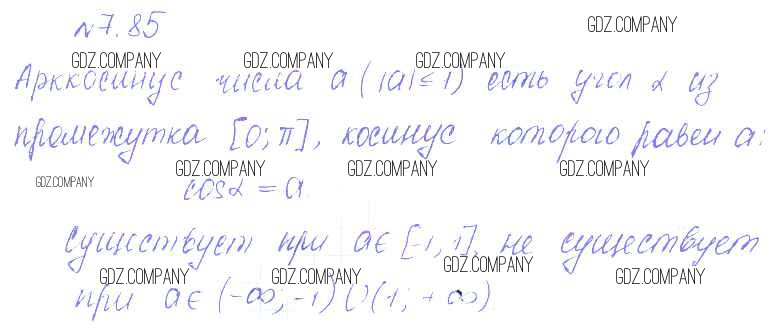 №7.85
GDZ.COMPANY
GDZ.COMPANY GDZ.COMPANY GDZ.COMPANY GDZ.COMPANY
Арккосинус числа a (|a| ≤ 1) есть угол α из
промежутка [0; π], косинус которого равен a:
GDZ.COMPANY GDZ.COMPANY GDZ.COMPANY GDZ.COMPANY
cosα = a.
существует при a∈[-1, 1], не существует
GDZ.COMPANY GDZ.COMPANY GDZ.COMPANY GDZ.COMPANY
при a∈(-∞; -1)∪(1; +∞).